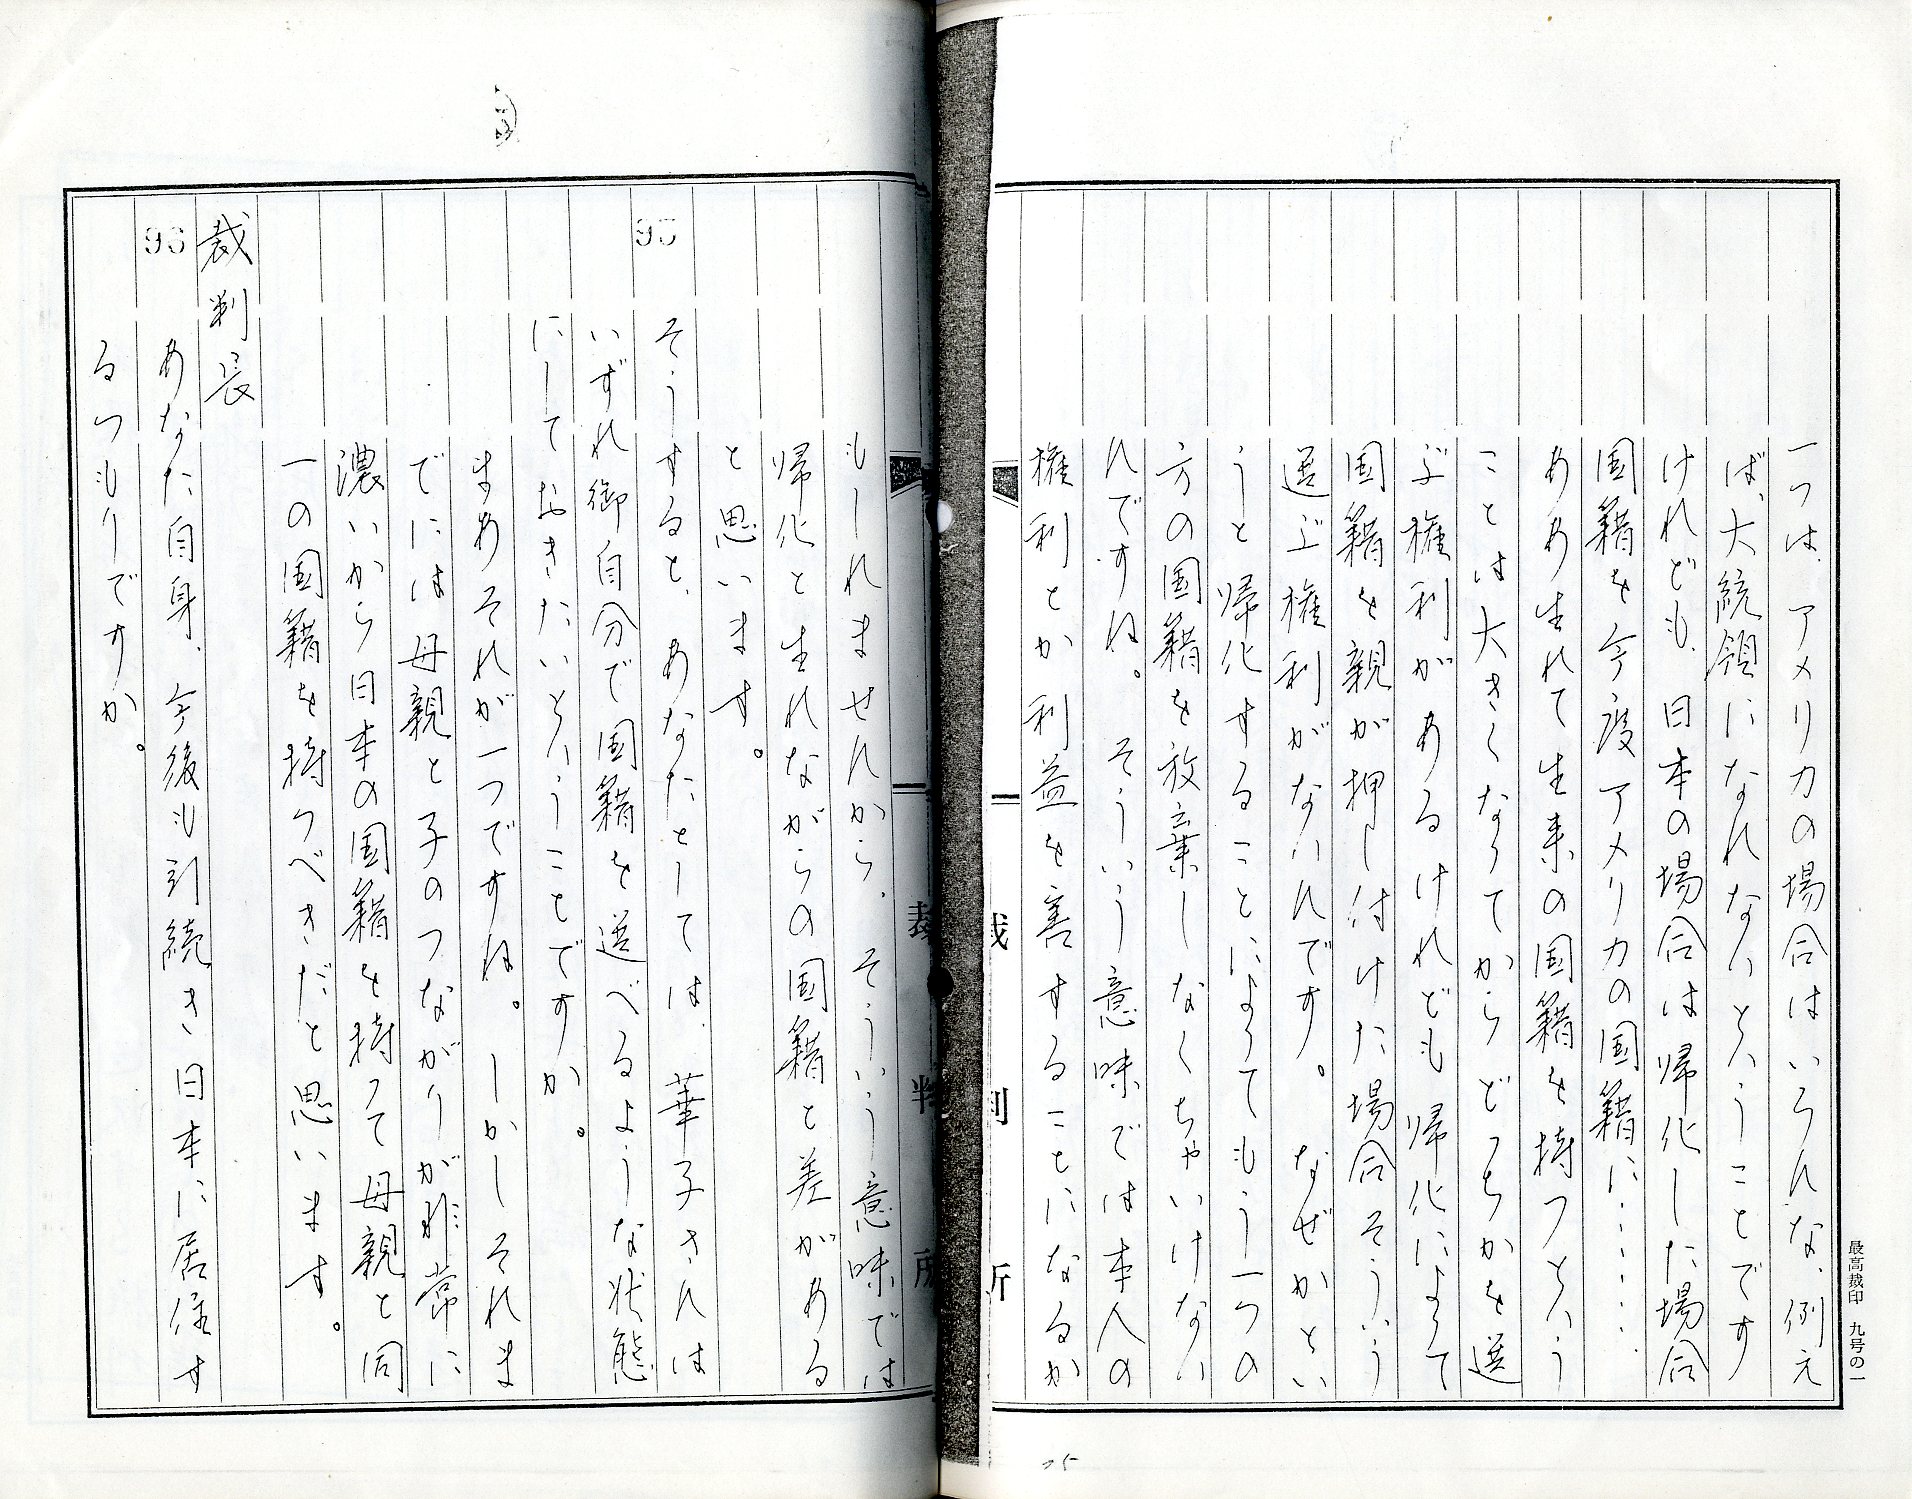 一つは、アメリカの場合はいろんな、例え
ば、大統領になれないということです
けれども、日本の場合は帰化した場合
国籍を今度アメリカの国籍に……
ああ生れて生来の国籍を持つという
ことは大きくなってからどっちかを選
ぶ権利があるけれども帰化によって
国籍を親が押し付けた場合そういう
選ぶ権利がないんです。なぜかとい
うと帰化することによってもう一つの
方の国籍を放棄しなくちゃいけない
んですね。そういう意味では本人の
権利とか利益を害することになるか
裁判所
最高裁印 九号の一
もしれませんから、そういう意味では
帰化と生れながらの国籍と差がある
と思います。
95
そうすると、あなたとしては、華子さんは
いずれ御自分で国籍を選べるような状態
にしておきたいということですか。
まあそれが一つですね。しかしそれま
でには母親と子のつながりが非常に
濃いから日本の国籍を持って母親と同
一の国籍を持つべきだと思います。
裁判長
96
あなた自身、今後も引続き日本に居住す
るつもりですか。
裁判所